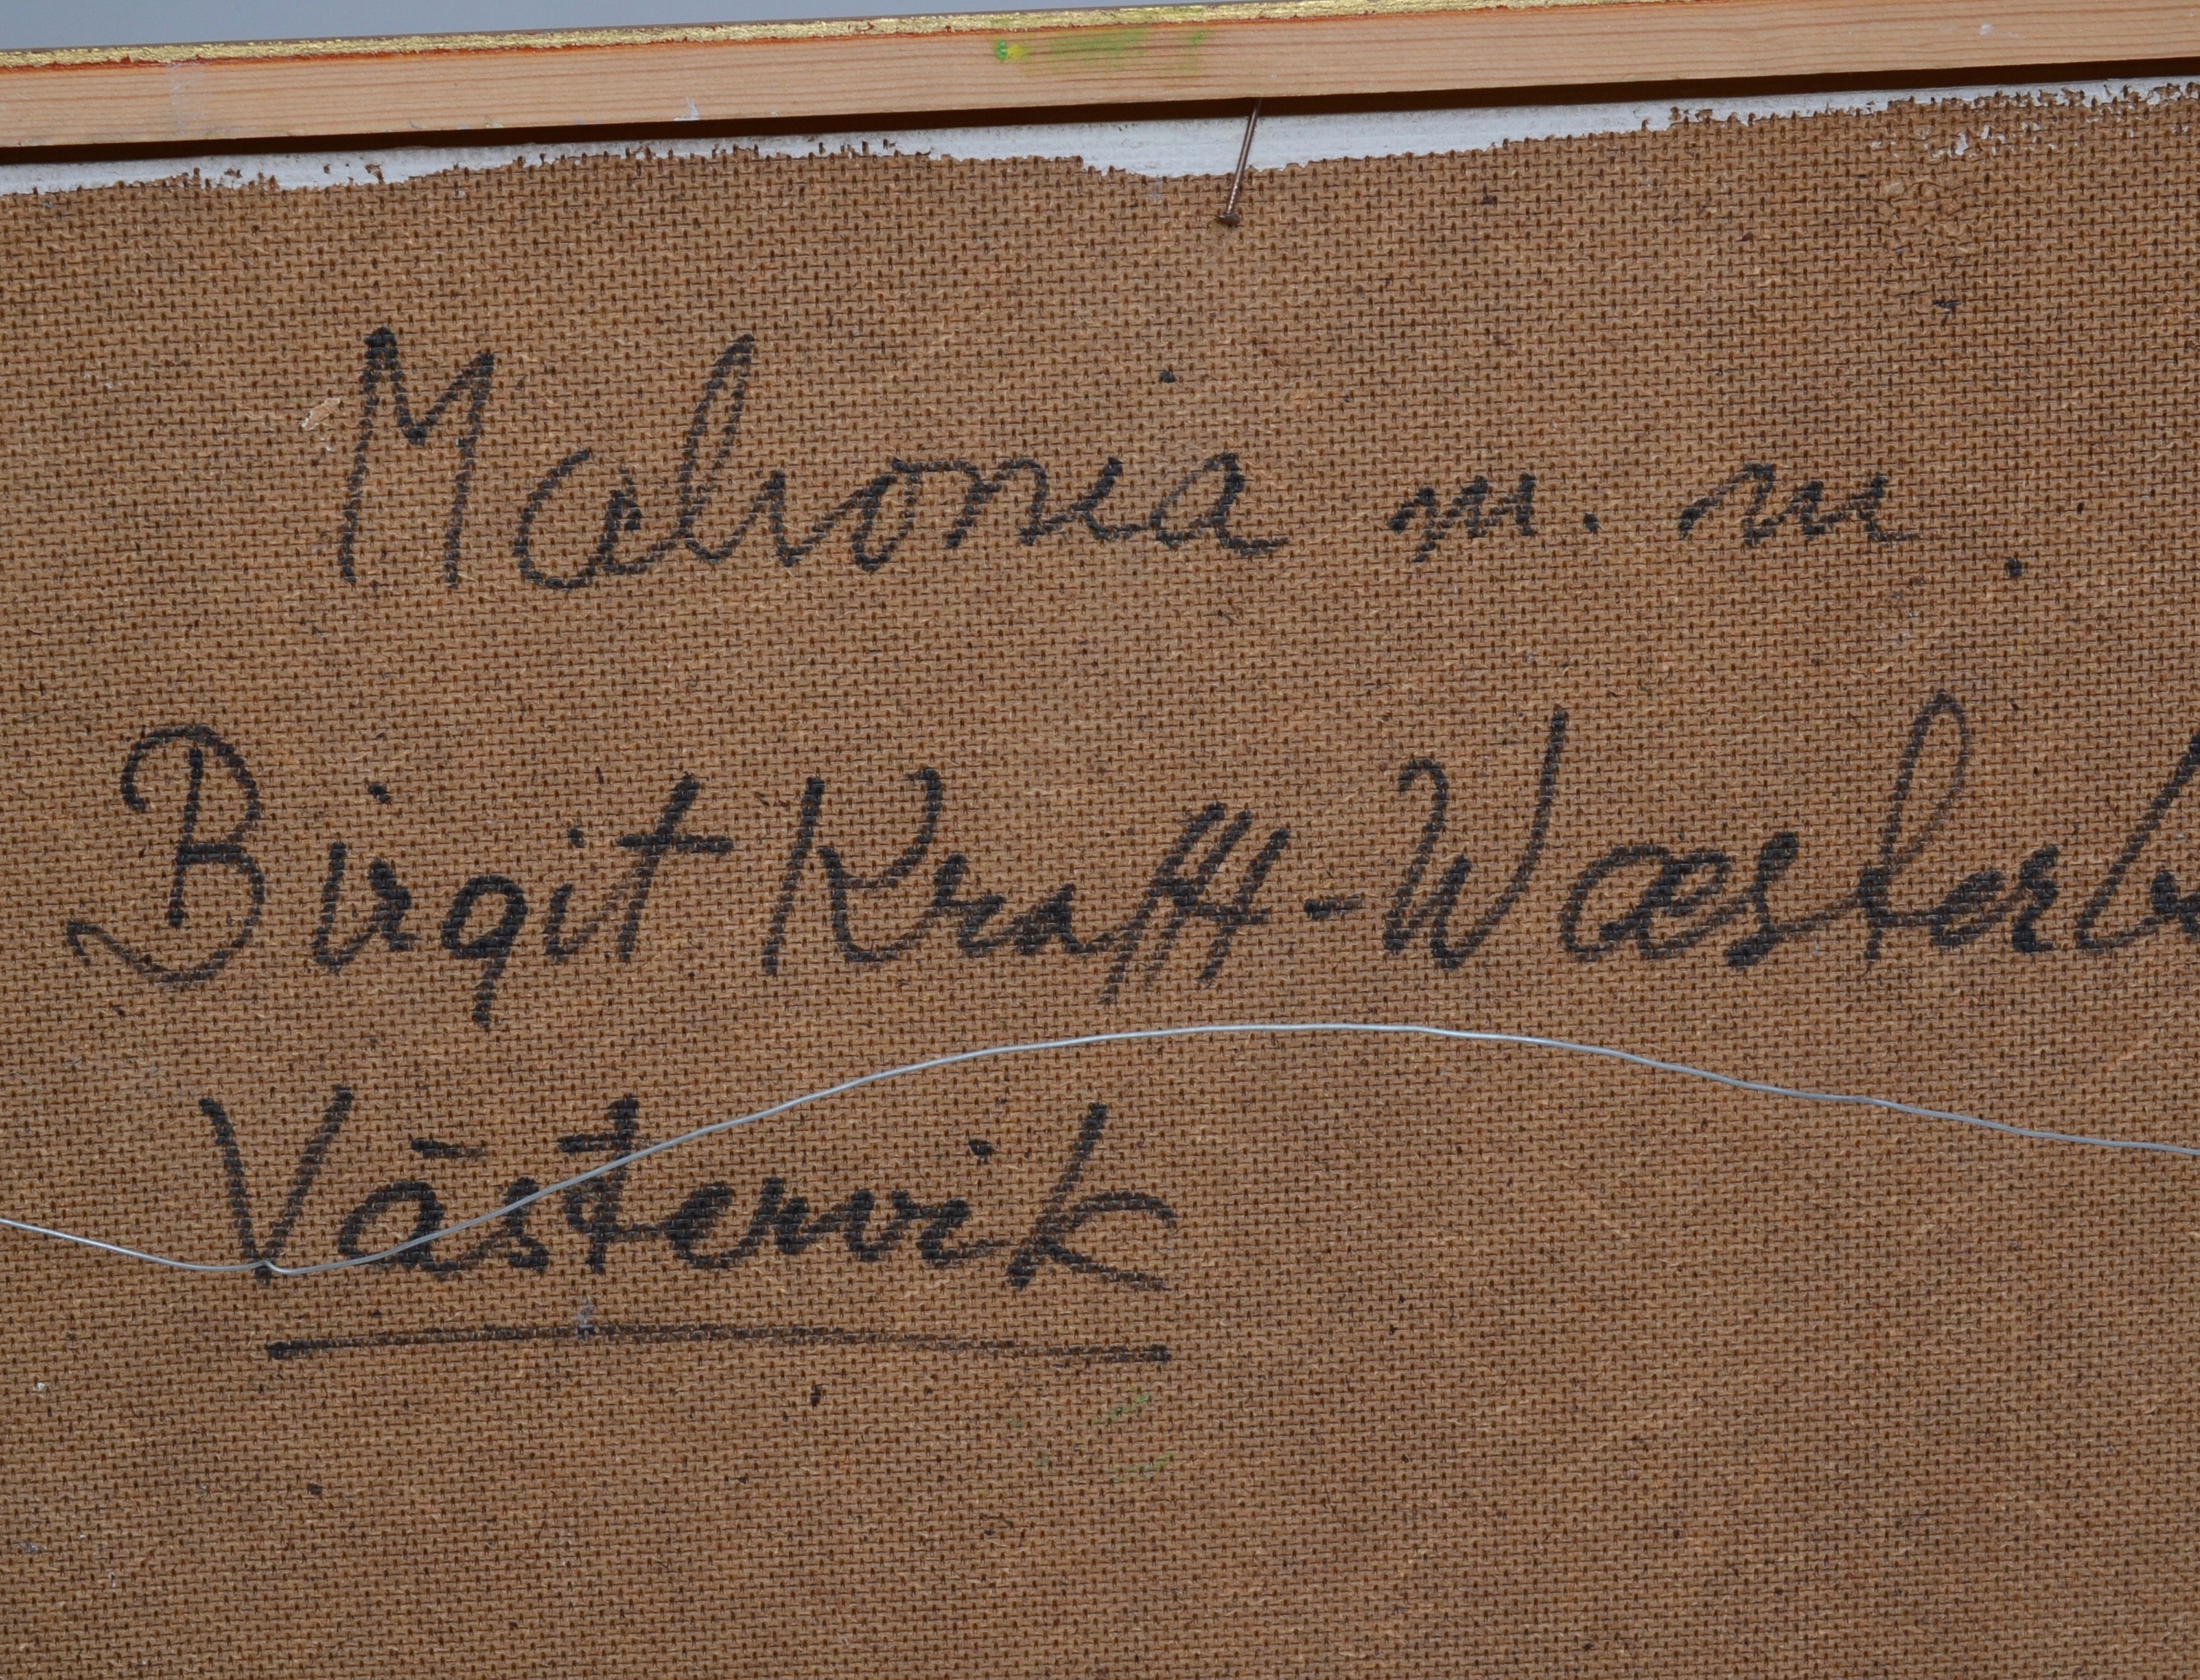 Mahonia m. m.
Birgit Krafft-Wæsterb
Västervik